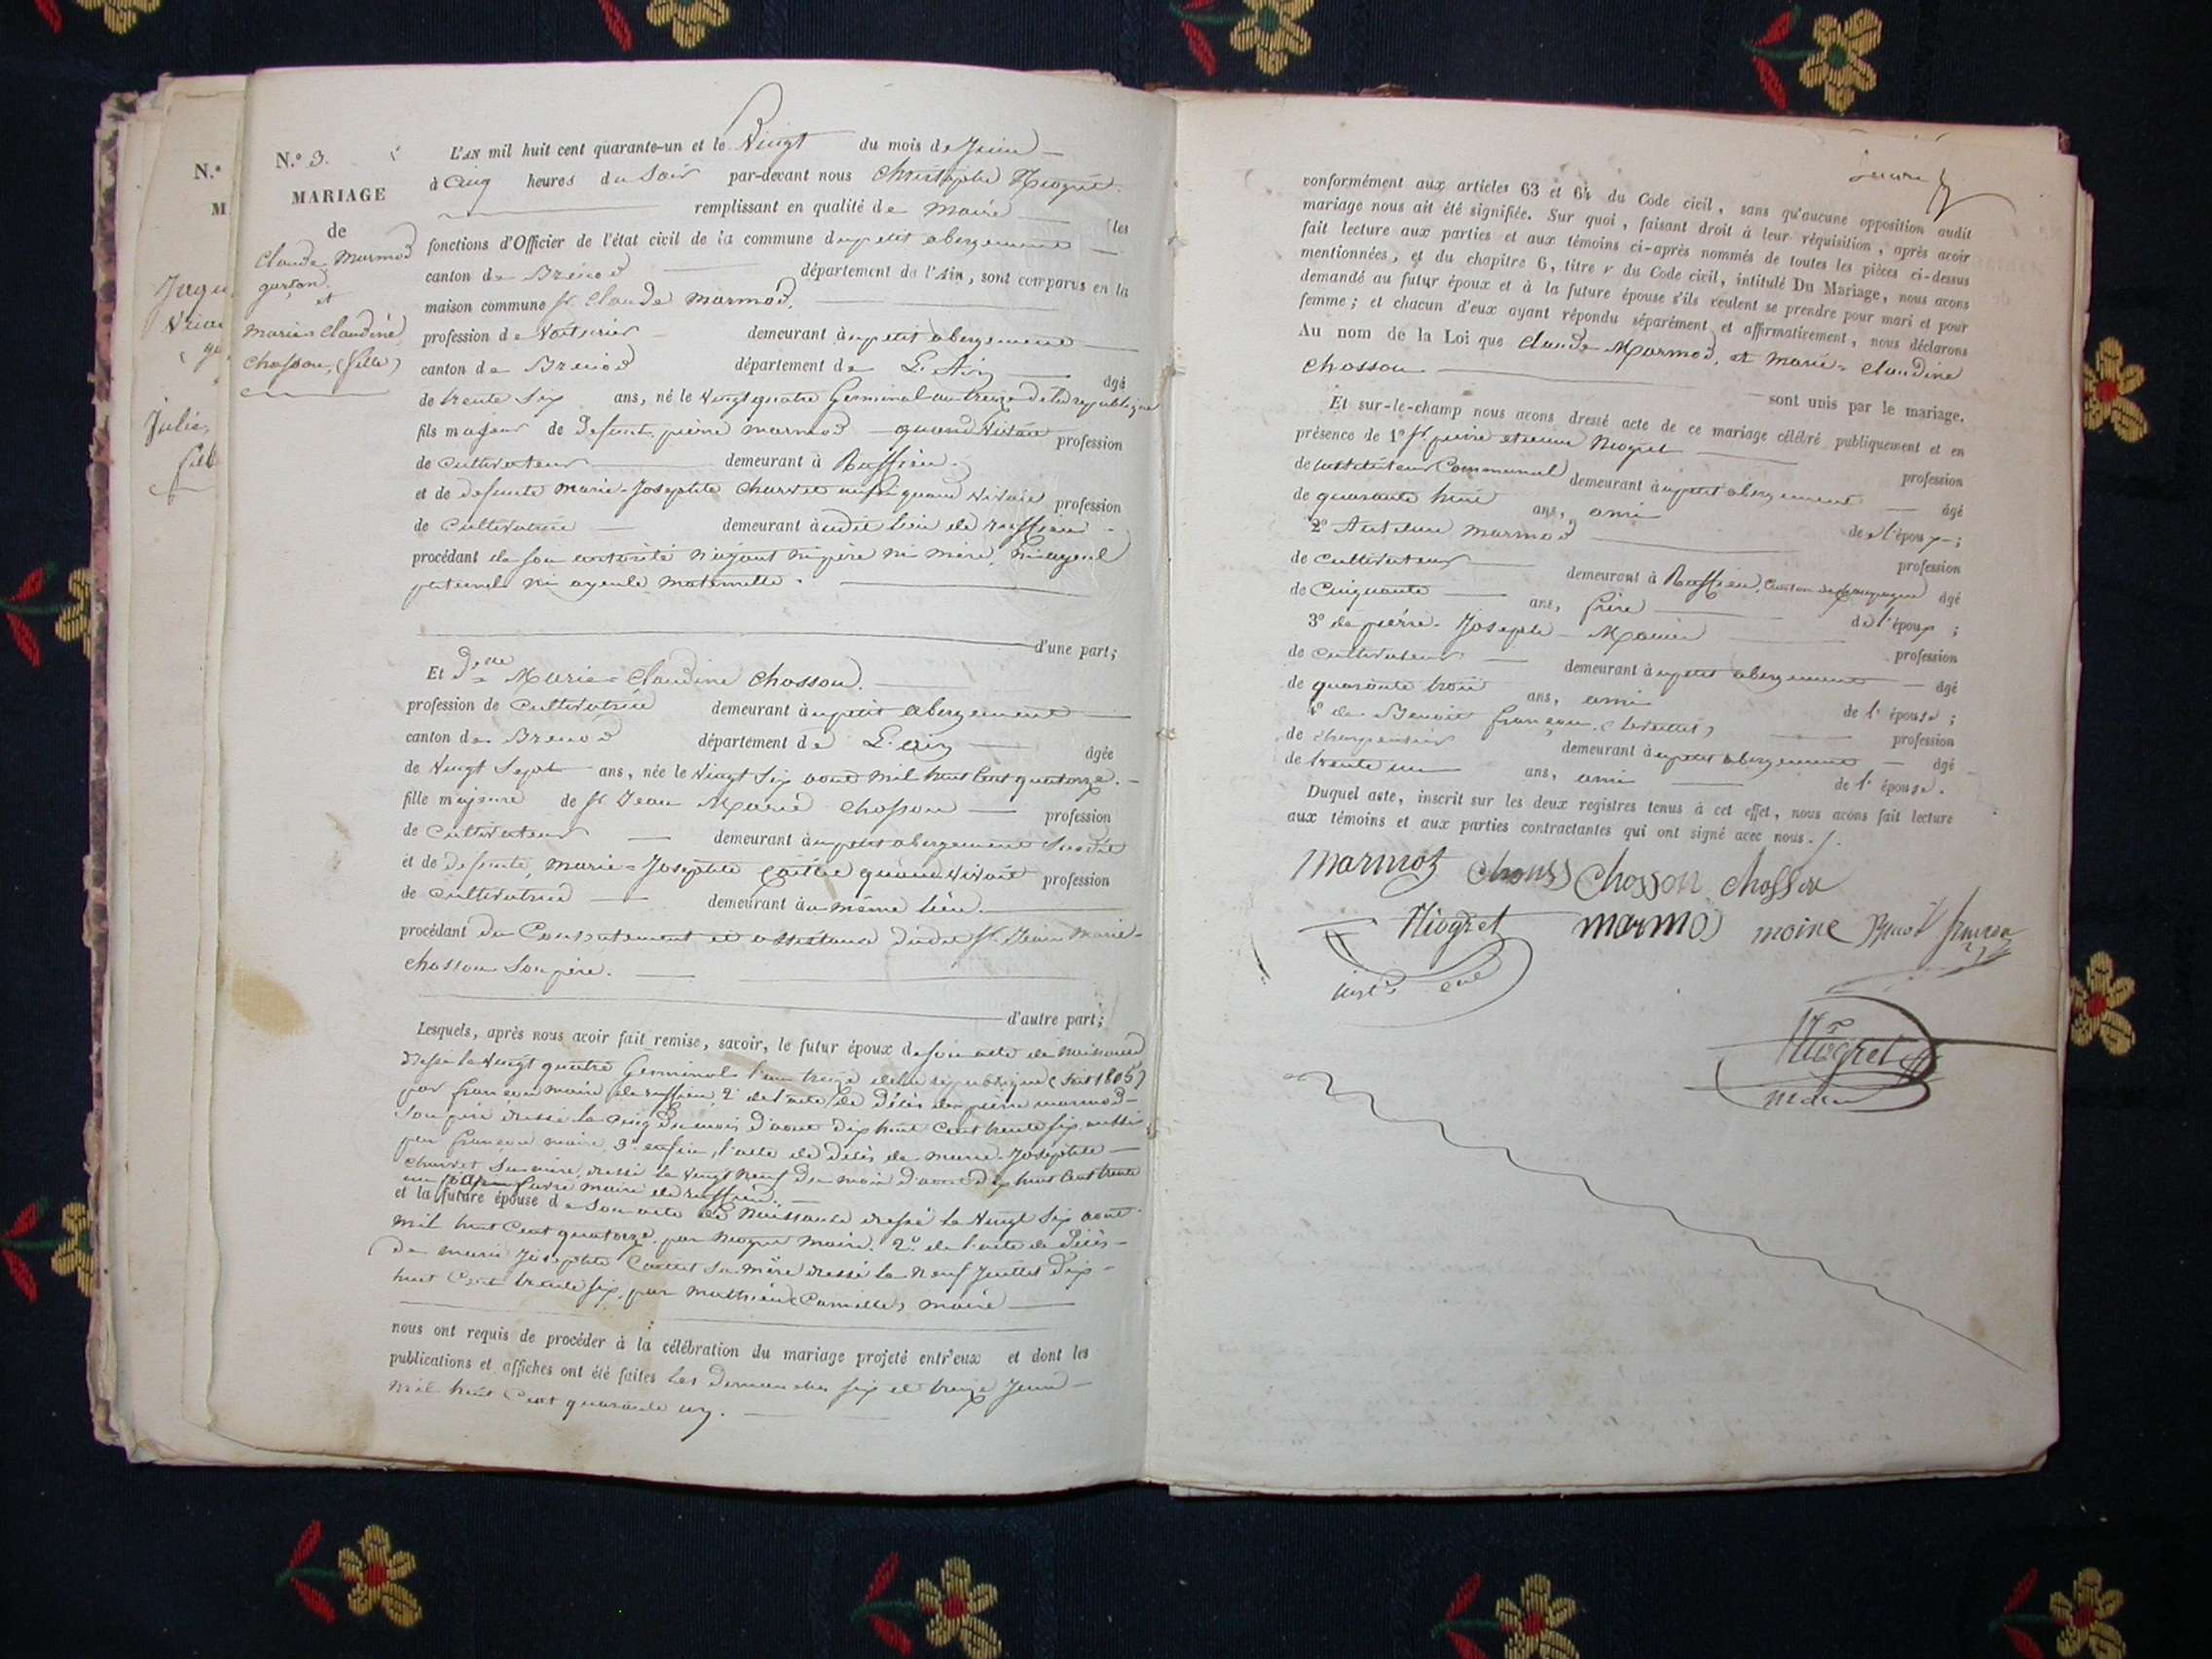 N.° 3.
MARIAGE
de
Claude Marmod
garçon.
et
Marie=Claudine
Chosson, (fille)
N.°
M
Julie,
L'an mil huit cent quarante-un et le Vingt du mois de Juin
à Cinq heures du Soir par-devant nous Christophe Niogret
remplissant en qualité de Maire les
fonctions d'Officier de l'état civil de la commune du petit abergement
canton de Brenod département de l'Ain, sont comparus en la
maison commune sr. Claude Marmod.
profession de Voiturier demeurant au petit abergement
canton de Brenod département de L'Ain âgé
de trente Six ans, né le Vingt quatre Germinal an treize de la republique
fils majeur de defunt pierre marmod quand Vivait profession
de Cultivateur demeurant à Ruffieu.
et de defunte Marie-Josephte Charvet aussi quand vivait profession
de Cultivatrice demeurant audit lieu de ruffieu
procédant de son autorité n'ayant ni père ni mère, ni ayeul
paternel ni ayeule maternelle.
d'une part;
Et dlle Marie=Claudine Chosson.
profession de Cultivatrice demeurant au petit abergement
canton de Brenod département de L'ain âgée
de Vingt Sept ans, née le Vingt Six aout mil huit Cent quatorze.
fille majeure de sr Jean Marie Chosson profession
de Cultivateur demeurant au petit abergement Susdit
et de defunte, Marie=Josephte quand Vivait profession
de Cultivatrice demeurant au même lieu.
procédant du Consentement et assistance dudit sr. Jean Marie-
Chosson Son père.
d'autre part;
Lesquels, après nous avoir fait remise, savoir, le futur époux de son acte de Naissance
dressé le Vingt quatre Germinal l'an treize de la republique (soit 1805)
par françois maire de ruffieu, 2° de l'acte de décès de pierre marmod-
Son père dressé le Cinq du mois d'aout dix huit Cent trente six aussi
par françois maire, 3° enfin, l'acte de décès de Marie-Josephte
Charvet Sa mère, dressé le Vingt Neuf du mois d'aout dix huit Cent trente
un maire de ruffieu.
et la future épouse de Son acte de Naissance dressé le Vingt Six aout
mil huit Cent quatorze. par Niogret Maire. 2.° de l'acte de décès-
de Marie Josephte Caillet Sa Mère dressé le Neuf Juillet dix-
huit Cent trente six, par Mathieu Camille, Maire
nous ont requis de procéder à la célébration du mariage projeté entr'eux et dont les
publications et affiches ont été faites Les dimanches six et treize Juin
mil huit Cent quarante un.
conformément aux articles 63 et 64 du Code civil, sans qu'aucune opposition audit
mariage nous ait été signifiée. Sur quoi, faisant droit à leur réquisition, après avoir
fait lecture aux parties et aux témoins ci-après nommés de toutes les pièces ci-dessus
mentionnées, et du chapitre 6, titre v du Code civil, intitulé Du Mariage, nous avons
demandé au futur époux et à la future épouse s'ils veulent se prendre pour mari et pour
femme; et chacun d'eux ayant répondu séparément et affirmativement, nous déclarons
Au nom de la Loi que Claude Marmod. et Marie=Claudine
Chosson
sont unis par le mariage.
Et sur-le-champ nous avons dressé acte de ce mariage célébré publiquement et en
présence de 1° sr pierre etienne Niogret profession
de instituteur Communal demeurant au petit abergement âgé
de quarante huit ans, ami de l'époux;
2° Antelme Marmod profession
de Cultivateur demeurant à Ruffieu, Canton de Champagne âgé
de Cinquante ans, frère de l'époux;
3° de pierre-Joseph Moine profession
de Cultivateur demeurant au petit abergement âgé
de quarante trois ans, ami de l'épouse;
4° de Benoit françois profession
de charpentier demeurant au petit abergement âgé
de trente un ans, ami de l'épouse.
Duquel acte, inscrit sur les deux registres tenus à cet effet, nous avons fait lecture
aux témoins et aux parties contractantes qui ont signé avec nous.
Marmoz Chosson Chosson
Niogret marmod moine
Niogret
Maire